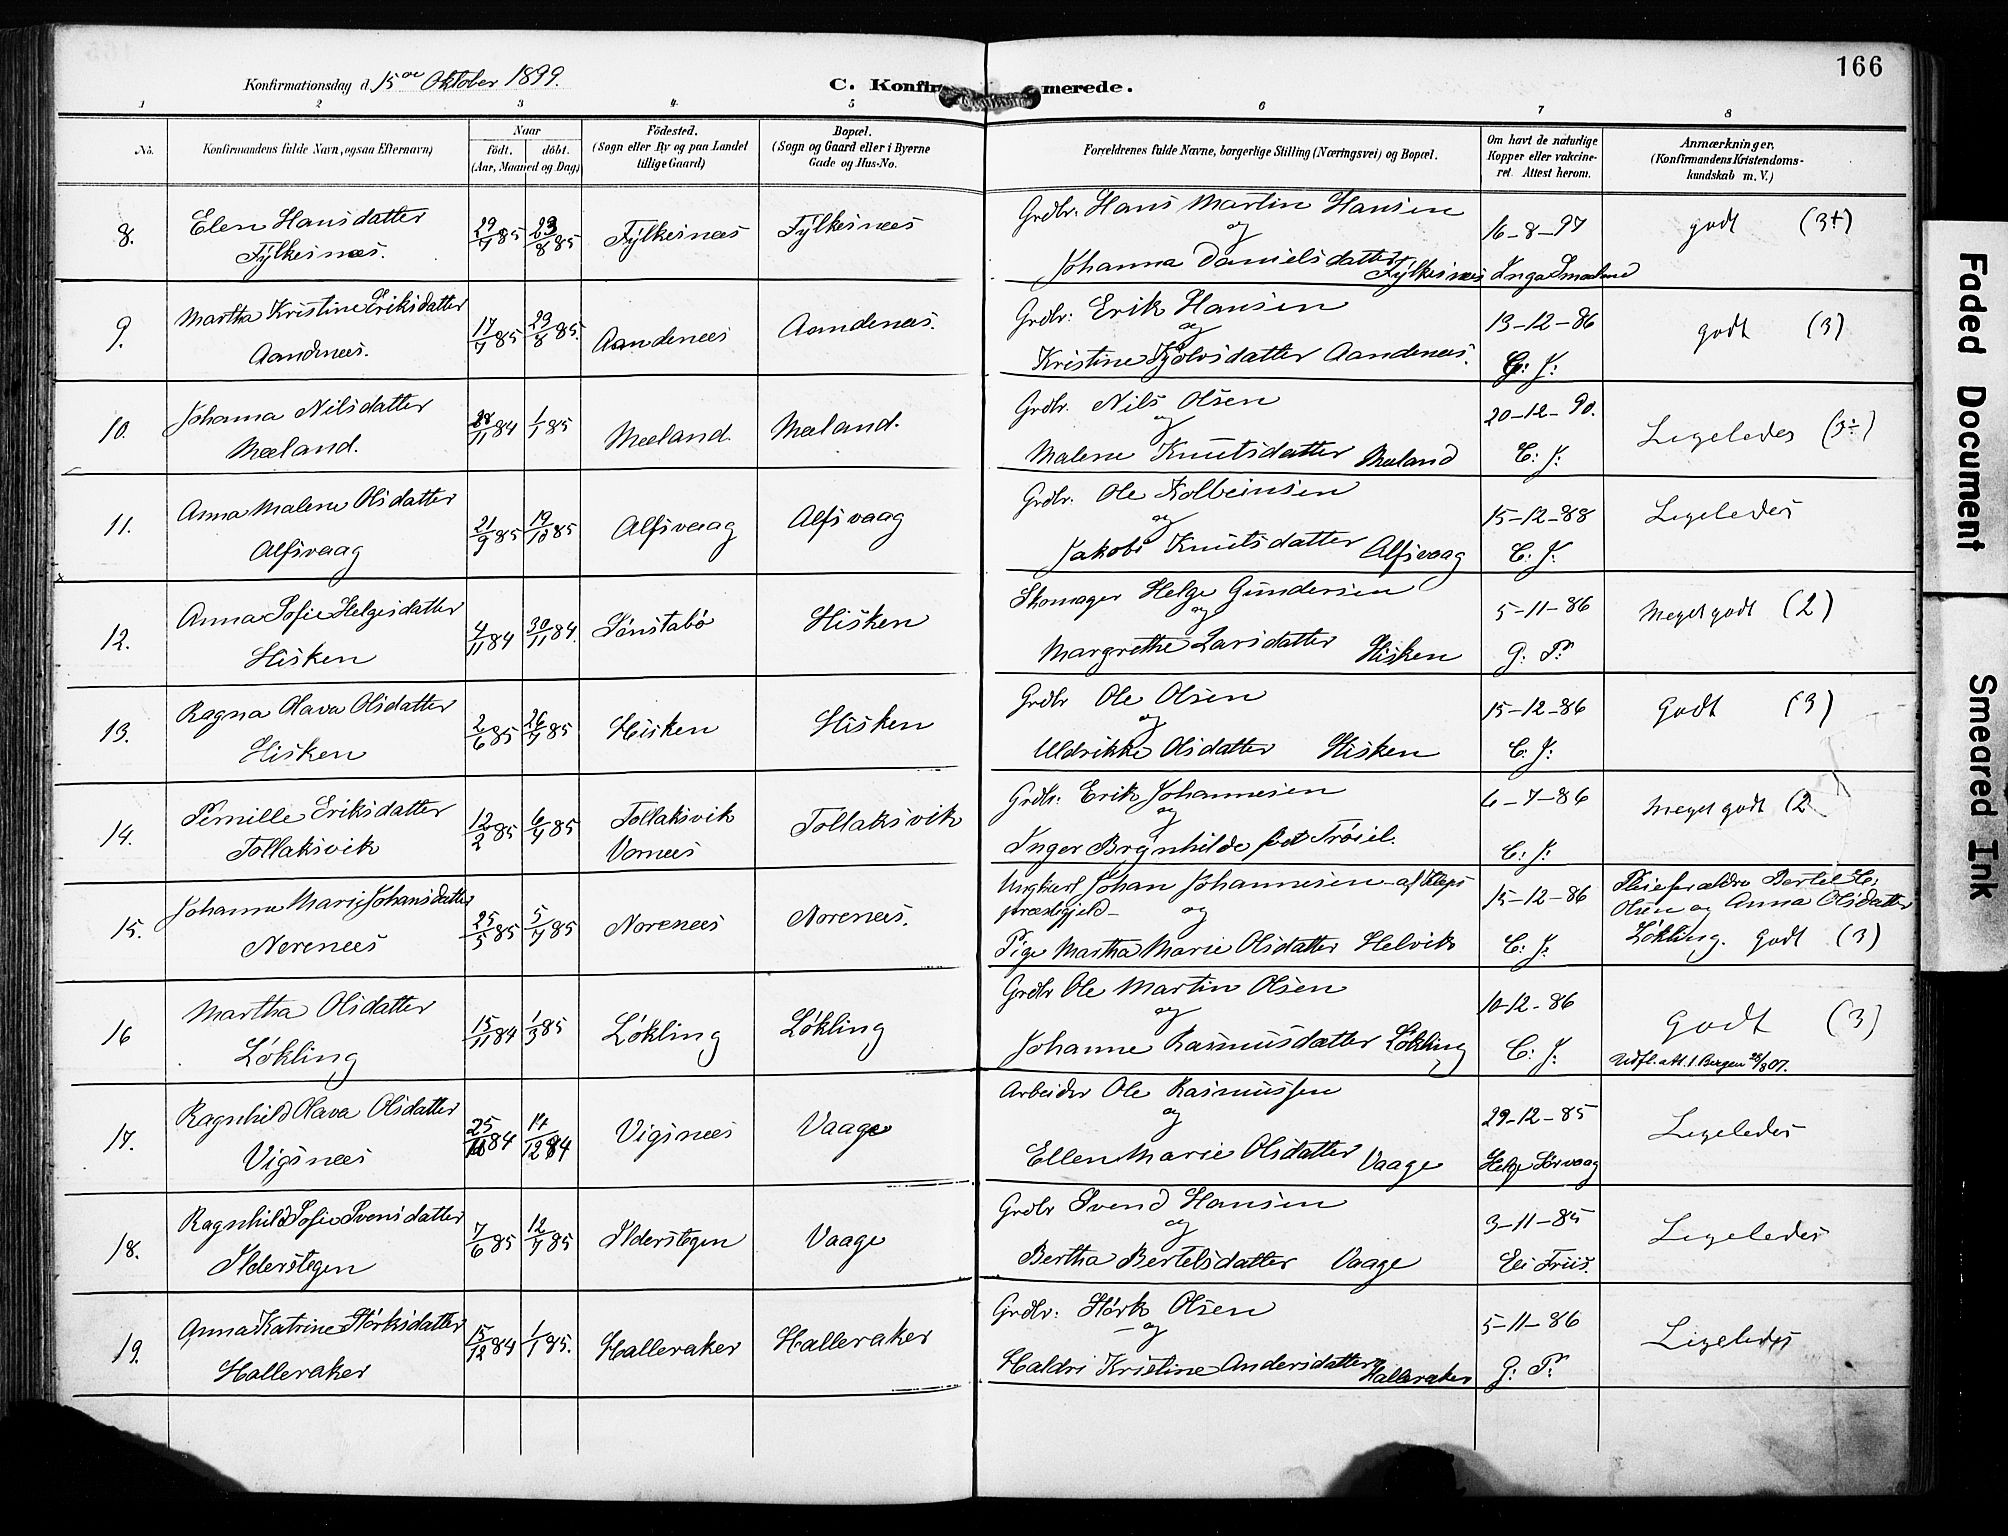 166
Konfirmationsday d. 15de Oktober 1899.
C. Konfirmerede.
1 2 3 4. 5 6 7 8
No.
Konfirmandens fulde Navn, ogsaa Efternavn)
Naar
født. døbt.
(Aar, Maaned og Dag)
Fødested.
(Sogn eller By og paa Landet
tillige Gaard)
Bopæl.
(Sogn og Gaard eller i Byerne
Gade og Hus-No.
Forældrenes fulde Navne, borgerlige Stilling (Næringsvei) og Bopæl.
Om havt de naturlige
Kopper eller vakcine-
ret. Attest herom.
Anmærkninger.
(Konfirmandens Kristendoms-
kundskab m. V.)
8. Elen Hansdatter
Fylkesnæs.
29/7 85 23/8 85 Fylkesnæs Fylkesnæs
Grdbr. Hans Martin Hansen
og
Johanna Danielsdatter Fylkesnæs
16-8-97
Inga Smaland
godt (3+)
9. Martha Kristine Eriksdatter
Aandenæs.
17/7 85 23/8 85. Aandenæs Aandenæs.
Grdbr: Erik Hansen
og
Kristine Kjølvsdatter Aandenæs.
13-12-86
C: J:
godt (3)
10. Johanna Nilsdatter
Mæland.
28/11 84 1/1 85 Mæland. Mæland.
Grdbr. Nils Olsen
og
Malene Knutsdatter Mæland
20-12-90.
C: J:
Ligeledes (3÷)
11. Anna Malene Olsdatter
Alfsvaag
21/9 85 19/10 85 Alfsvaag Alfsvaag
Grdbr. Ole Kolbeinsen
og
Jakobi Knutsdatter Alfsvaag
15-12-88
C. J.
Ligeledes
12. Anna Sofie Helgesdatter
Hisken
4/11 84 30/11 84. Sønstabø Hisken
Skomager Helge Gundersen
og
Margrethe Larsdatter Hisken
5-11-86
G: P:
Meget godt (2)
13. Ragna Olava Olsdatter
Hisken
2/6 85 26/7 85 Hisken Hisken
Grdbr Ole Olsen
og
Uldrikke Olsdatter Hisken
15-12-86
C. J:
Godt (3)
14. Pernille Eriksdatter
Tollaksvik
12/2 85 6/4 85 Tollaksvik
Vornæs
Tollaksvik
Grdbr. Erik Johannesen
og
Inger Brynhilde født Trøiel.
6-7-86
C. J:
Meget godt (2
15. Johanne Marie Johansdatter
Norenæs
25/5 85 5/7 85 Norenæs Norenæs.
Ungkarl Johan Johannesen af Kleps
præstegjeld-
og
Pige Martha Marie Olsdatter Helvik
15-12-86
C. J.
Pleieforældre Bertel
Olsen og Anna Olsdatter
Løkling. Godt (3)
16 Martha Olsdatter
Løkling
15/11 84 1/3 85 Løkling Løkling
Grdbr Ole Martin Olsen
og
Johanne Rasmusdatter Løkling
10-12-86
C: J:
Godt (3)
Udfl. att. t. Bergen 28/8 07.
17. Ragnhild Olava Olsdatter
Vigsnæs
25/10 84 14/12 84 Vigsnæs Vaage
Arbeider Ole Rasmussen
og
Ellen Marie Olsdatter Vaage
29-12-85
Helge Sørvaag
Ligeledes
18. Ragnhild Sofie Svensdatter
Ilderstegen
7/6 85 12/7 85 Ilderstegen Vaage
Grdbr Svend Hansen
og
Bertha Bertelsdatter Vaage
3-11-85
Eli Friis.
Ligeledes
19. Anna Katrine Størksdatter
Halleraker
15/12 84 1/1 85. Halleraker Halleraker
Grdbr. Størk Olsen
og
Haldri Kristine Andersdatter Halleraker
5-11-86
G: P:
Ligeledes
Faded Document
Smeared Ink